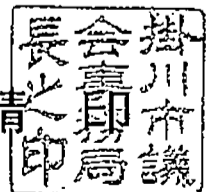 掛川市議
会事務局
長之印
印
青